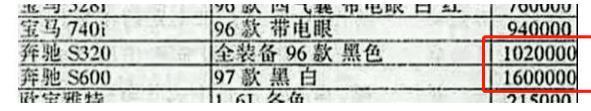 宝马 328i 96 款 四气囊 带电眼 白 红 760000
宝马 740i 96 款 带电眼 940000
奔驰 S320 全装备 96 款 黑色 1020000
奔驰 S600 97 款 黑 白 1600000
欧宝雅特 1.6L 各色 215000